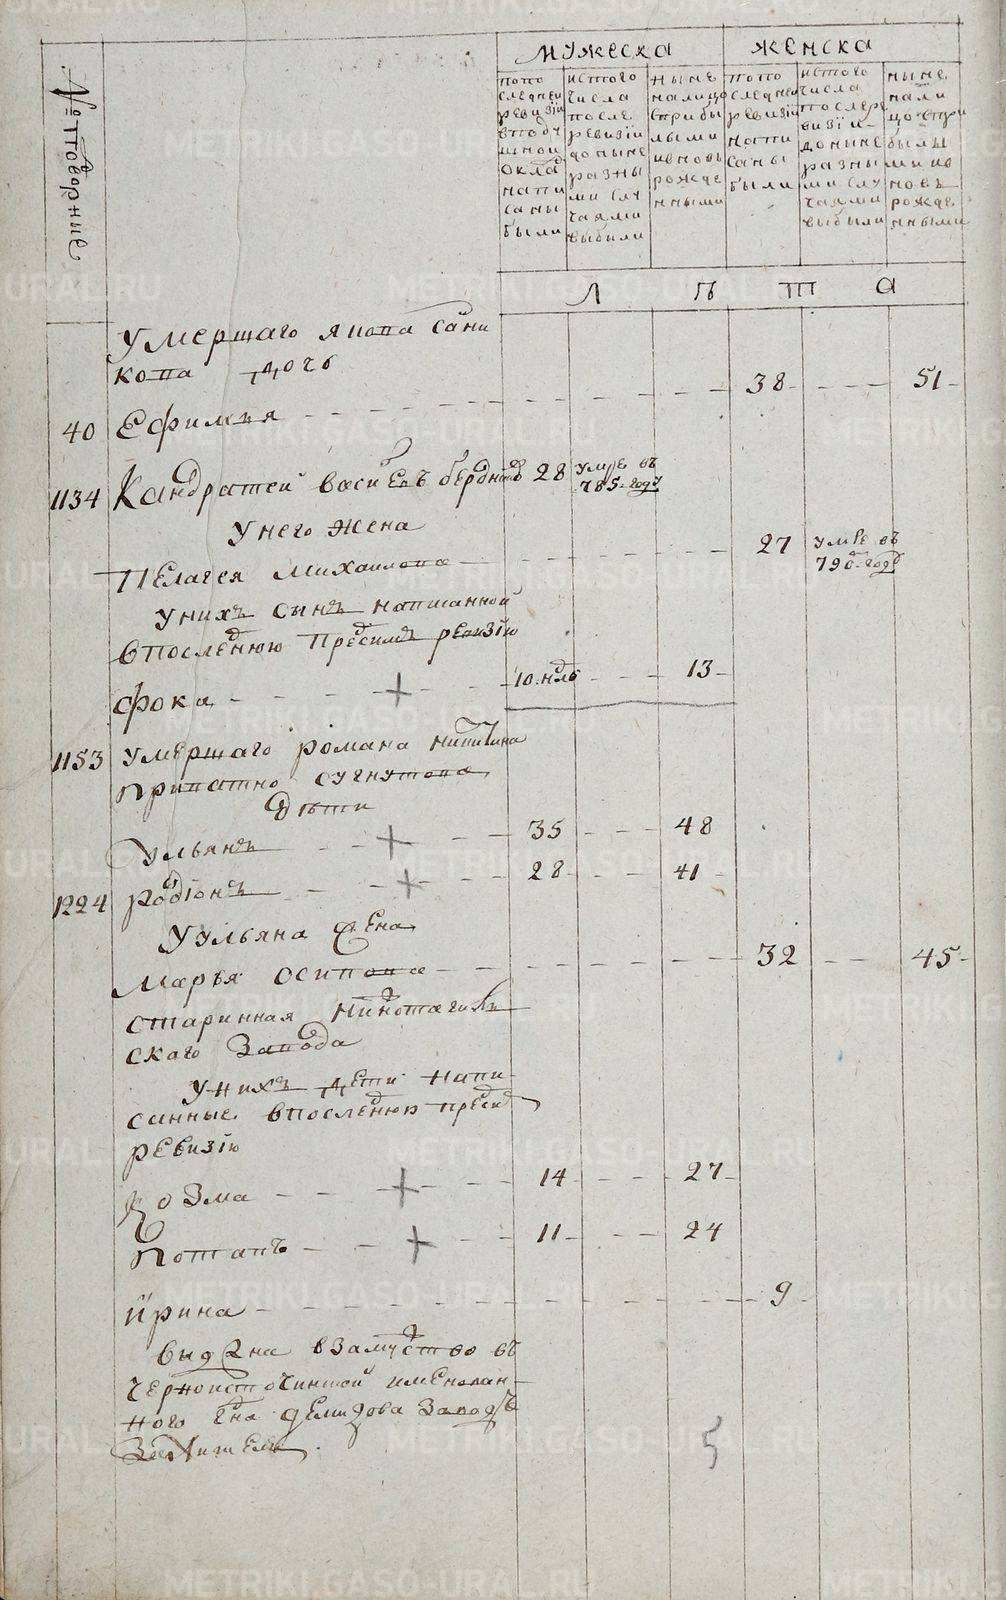 мужеска женска
№ подворные
попо
следней
ревизiи
вподу
шной
оклад
напи
саны
были
истого
числа
после
ревизiи
доныне
разны
ми слу
чаями
выбыли
ныне
налицо
сприбы
лыми
ивновь
рожде
нными
попо
следней
ревизiи
напи
саны
были
истого
числа
послере
визiи
доныне
разны
ми слу
чаями
выбыли
ныне
нали
цо спри
былы
ми ив
новь
рожде
нными
Л ѣ т а
умершаго якова сани
кова дочь
40 Ефимья 38 51
1134 Кандратей васильевъ бердниковъ 28 умре въ
785 году
Унего жена
Пелагея михаилова 27 умре въ
790 году
унихъ сынъ написанной
впоследнюю предсимъ ревизiю
фока + 10 нѣд 13
1153 умершаго романа никитина
дѣти
ульянъ + 35 48
1224 родiонъ + 28 41
Уульяна жена
марья осипова 32 45
старинная нижнотагиль
скаго завода
унихъ дети напи
санные впоследнюю предсим
ревизiю
козма + 14 27
потапъ + 11 24
ирина 9
выдана взамужство въ
черноисточинской имянован
ного ево демидова заводъ
зажителя
5
METRIKI.GASO-URAL.RU